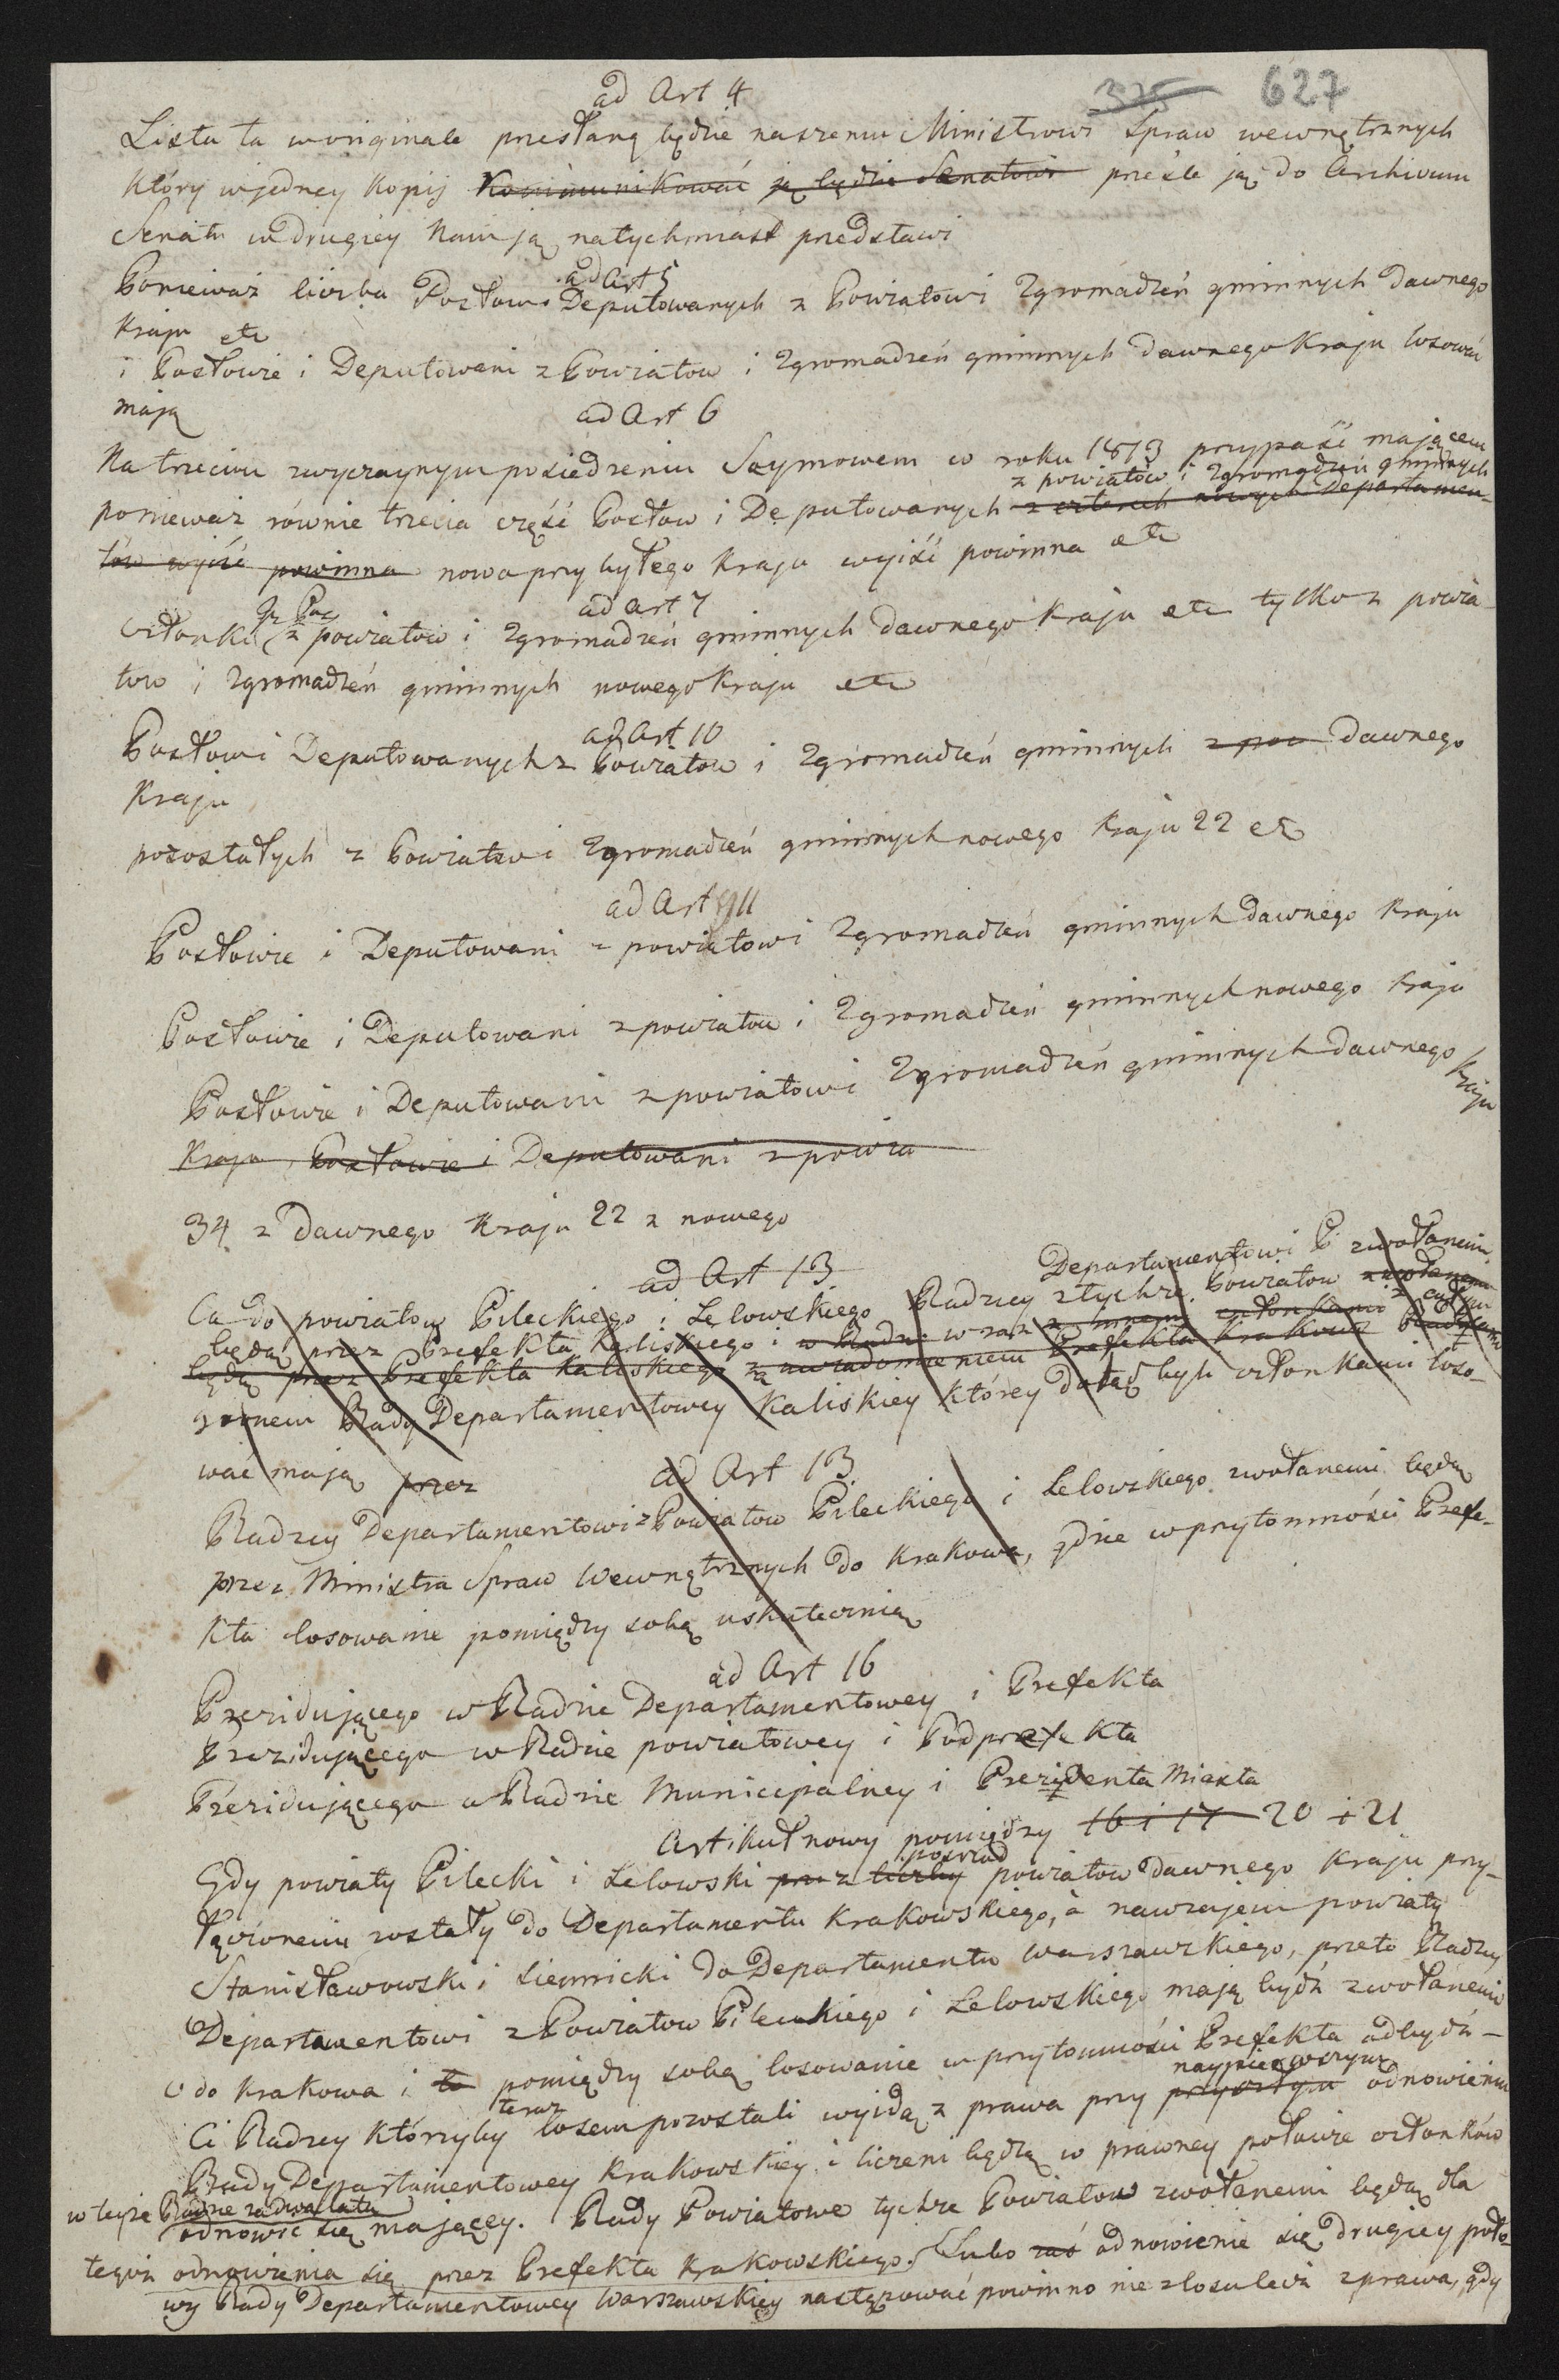 375 627
ad Art 4
Lista ta woriginale przesłaną będzie naszemu Ministrowi Spraw wewnętrznych
który wjedney Kopij Kommunikować ją będzie Senatowi prześle ją do Archivum
Senatu w drugiey Nam ją natychmiast przedstawi
ad Art 5
Ponieważ liczba Posłow i Deputowanych z Powiatow i Zgromadzeń gminnych dawnego
Kraju etc
i Posłowie i Deputowani z Powiatow i Zgromadzeń gminnych dawnego Kraju losować
mają
ad Art 6
Na trzeciem zwyczaynym posiedzeniu Seymowem w roku 1813 przypaść mającem
z powiatów i Zgromadzeń gminnych
ponieważ równie trzecia część Posłow i Deputowanych z czterech nowych Departamen-
tów wyiść powinna nowo przybyłego Kraju wyiść powinna etc
ad art 7
Członki z powiatow i Zgromadzeń gminnych dawnego Kraju etc tylko z powia-
tow i Zgromadzeń gminnych nowego Kraju etc
ad Art 10
Posłow i Deputowanych z Powiatow i Zgromadzeń gminnych z pow dawnego
Kraju
pozostałych z Powiatow i Zgromadzeń gminnych nowego Kraju 22 etc
ad Art 11
Posłowie i Deputowani z powiatow i Zgromadzeń gminnych dawnego Kraju
Posłowie i Deputowani z powiatow i Zgromadzeń gminnych nowego Kraju
Posłowie i Deputowani z powiatow i Zgromadzeń gminnych dawnego Kraju
Kraju Posłowie i Deputowani z powia
34 z dawnego Kraju 22 z nowego
ad Art 13
Departamentowi zwołanemi
Co do powiatow Pileckiego i Lelowskiego Radzcy z tychże Powiatow zwołanemi
będą przez Prefekta Kaliskiego i w Radzie wraz z innemi członkami z całym
będą przez Prefekta Kaliskiego za uwiadomieniem Prefekta Krakow
gronem Rady Departamentowey Kaliskiey którey dotąd byli członkami loso-
wać mają przez
ad Art 13
Radzcy Departamentowi z Powiatow Pileckiego i Lelowskiego zwołanemi będą
przez Ministra Spraw Wewnętrznych do Krakowa, gdzie w przytomności Prefe-
kta losowanie pomiędzy sobą uskutecznią
ad Art 16
Prezidującego w Radzie Departamentowey i Prefekta
Prezidującego w Radzie powiatowey i Podprefekta
Prezidującego w Radzie Municipalney i Prezidenta Miasta
Artikuł nowy pomiędzy 16 i 17 20 i 21
pośrzod
Gdy powiaty Pilecki i Lelowski prz z liczby powiatow dawnego Kraju przy-
łączonemi zostały do Departamentu Krakowskiego, a nawzajem powiaty
Stanisławowski i Siennicki do Departamentu Warszawskiego, przeto Radzcy
Departamentowi z Powiatow Pileckiego i Lelowskiego mają bydź zwołanemi
do Krakowa i to pomiędzy sobą losowanie w przytomności Prefekta odbydź -
teraz naypierwszym
Ci Radzcy którzyby losem pozostali wyidą z prawa przy przyszłym odnowieniu
Rady Departamentowey Krakowskiey i liczeni będą w prawney połowie członków
w teyże Radzie za dwa lata
odnowić się maiącey. Rady Powiatowe tychże Powiatow zwołanemi będą dla
tegoż odnowienia się przez Prefekta Krakowskiego. Lubo zaś odnowienie się drugiey poło-
wy Rady Departamentowey Warszawskiey następować powinno nie z losu lecz z prawa, gdy